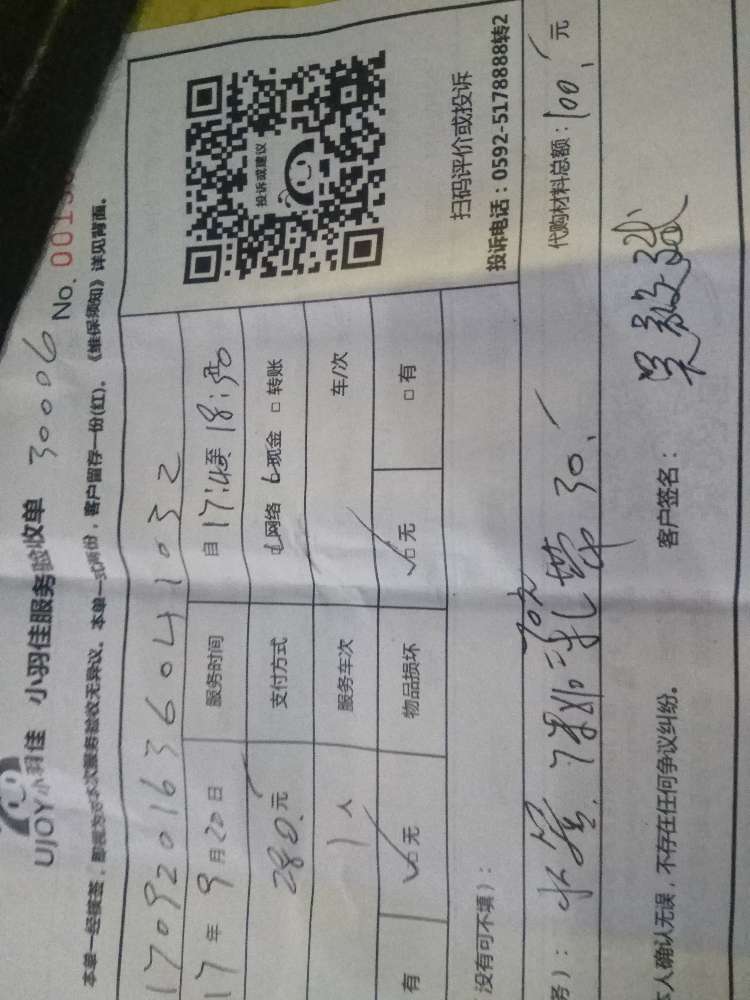 UJOY小羽佳 小羽佳服务验收单 30006 No.
本单一经接签，即视为对本次服务验收无异议。本单一式两份，客户留存一份(红)。《维保须知》详见背面。
1709201636041032
17年9月20日 服务时间 自17:45至18:50
280.元 支付方式 网络 现金 转账
1人 服务车次 车/次
有 无 物品损坏 无 有
没有可不填)：
投诉或建议
扫码评价或投诉
投诉电话：0592-5178888转2
务)： 30.
代购材料总额：100.元
人确认无误，不存在任何争议纠纷。 客户签名：